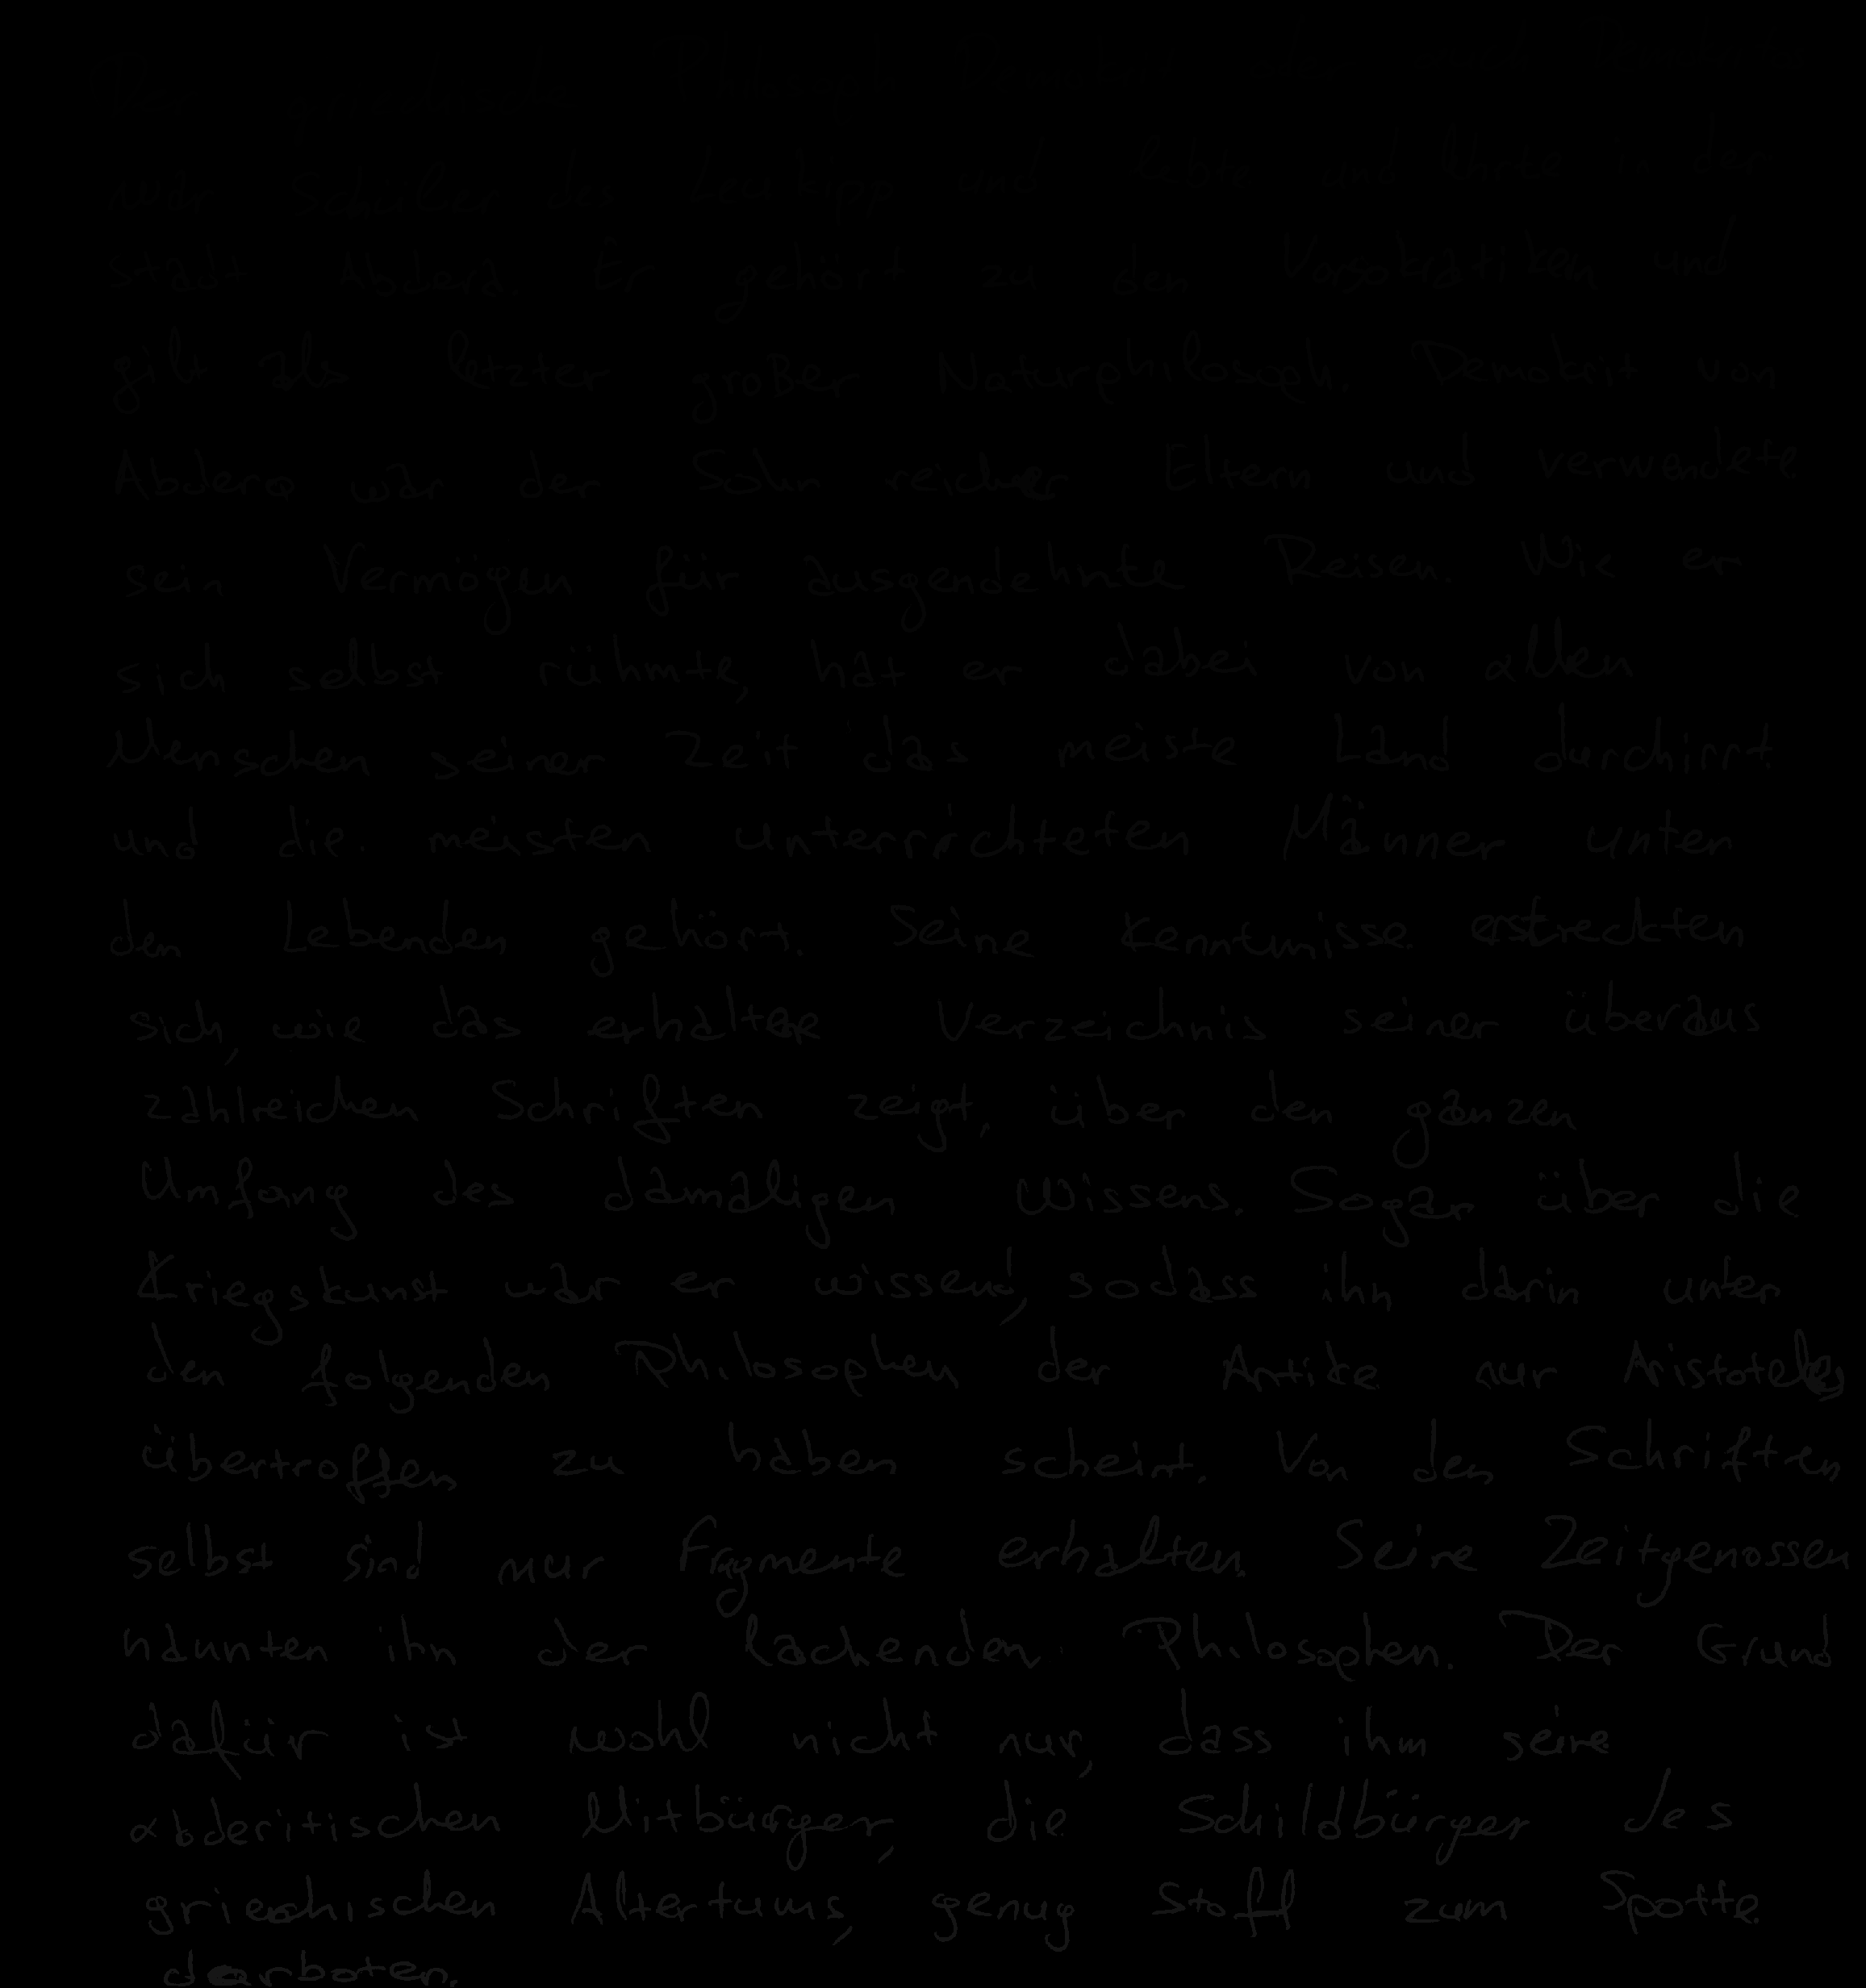 Philosoph
war Schüler des Leukipp und lebte und lehrte in der
Stadt Abdera. Er gehört zu den Vorsokratikern und
gilt als letzter großer Naturphilosoph. Demokrit von
Abdera war der Sohn reicher Eltern und verwendete
sein Vermögen für ausgendehnte Reisen. Wie er
sich selbst rühmte, hat er dabei von allen
Menschen seiner Zeit das meiste Land durchirrt
und die meisten unterrichteten Männer unter
den Lebenden gehört. Seine Kenntnisse erstreckten
sich, wie das erhaltene Verzeichnis seiner überaus
zahlreichen Schriften zeigt, über den ganzen
Umfang des damaligen Wissens. Sogar über die
Kriegskunst war er wissend, sodass ihn darin unter
den folgenden Philosophen der Antike nur Aristoteles
übertroffen zu haben scheint. Von den Schriften
selbst sind nur Fragmente erhalten. Seine Zeitgenossen
nannten ihn der lachenden Philosophen. Der Grund
dafür ist wohl nicht nur, dass ihm seine
abderitischen Mitbürger, die Schildbürger des
griechischen Altertums, genug Stoff zum Spotte
darboten.